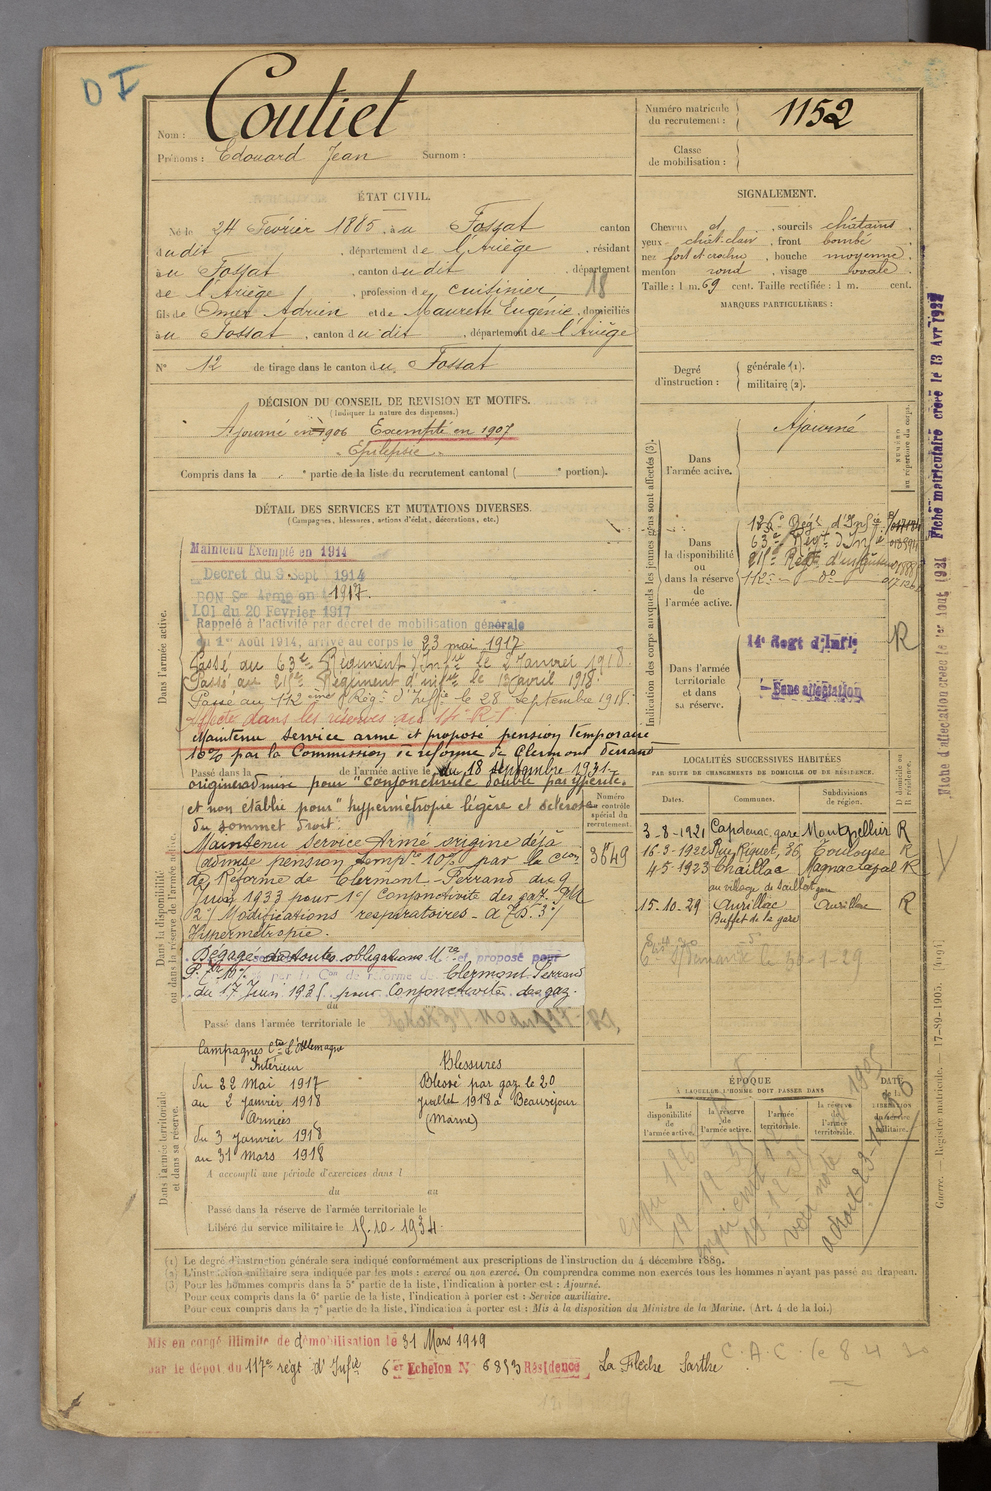 D I
Nom : Coutiet
Prénoms : Edouard Jean Surnom :
Numéro matricule du recrutement : 1152
Classe de mobilisation :
ÉTAT CIVIL.
Né le 24 Février 1885, à u Fossat canton
du dit, département de l'Ariège, résidant
à u Fossat, canton du dit, département
de l'Ariège, profession de cuisinier 18
fils de Omer Adrien et de Maurette Eugénie, domiciliés
à u Fossat, canton du dit, département de l'Ariège
N° 12 de tirage dans le canton du Fossat
SIGNALEMENT.
Cheveux et, sourcils châtains
yeux chât. clair, front bombé
nez fort et crochu, bouche moyenne
menton rond, visage ovale
Taille : 1 m. 69 cent. Taille rectifiée : 1 m. cent.
MARQUES PARTICULIÈRES :
Degré d'instruction : générale (1).
militaire (2).
DÉCISION DU CONSEIL DE REVISION ET MOTIFS.
(Indiquer la nature des dispenses.)
Ajourné en 1906 Exempté en 1907
"Epilepsie"
Compris dans la e partie de la liste du recrutement cantonal ( e portion).
DÉTAIL DES SERVICES ET MUTATIONS DIVERSES.
(Campagnes, blessures, actions d'éclat, décorations, etc.)
Dans l'armée active.
Maintenu Exempté en 1914
Décret du 9 Sept 1914
BON Sce Armé en 1917.
LOI du 20 Février 1917
Rappelé à l'activité par décret de mobilisation générale
du 1er Août 1914, arrivé au corps le 23 mai 1917
Passé au 63e Régiment d'Infie le 2 Janvier 1918.
Passé au 215e Régiment d'infie le 13 avril 1918.
Passé au 112ème Régt d'Inffie le 28 Septembre 1918.
Affecté dans les réserves du 14 R I
Maintenu Service armé et proposé pension temporaire
10% par la Commission de réforme de Clermont Ferrand
Passé dans la de l'armée active le du 18 septembre 1931
origine admise pour "conjonctivite double par ypérite"
et non établie pour "hypermétropie légère et sclérose
du sommet droit".
Maintenu Service Armé origine déjà
admise pension tempre 10% par la Con
de Réforme de Clermont-Ferrand du 9
Juin 1933 pour 1°/ Conjonctivite des gaz.
2°/ Modifications respiratoires 3°/
Hypermétropie.
Dégagé de toutes obligations Mres et proposé pour
P. 10% par la Con de réforme de Clermont Ferrand
du 17 Juin 1935 pour Conjonctivite des gaz.
Numéro au contrôle spécial du recrutement.
3649
Dans la disponibilité ou dans la réserve de l'armée active.
du
Passé dans l'armée territoriale le
Dans l'armée territoriale et dans sa réserve.
Campagnes Ctre l'Allemagne
Intérieur
du 22 Mai 1917
au 2 Janvier 1918
Armées
du 3 Janvier 1918
au 31 Mars 1918
Blessures
Blessé par gaz le 20
Juillet 1918 à Beauséjour
(Marne)
A accompli une période d'exercices dans l
du au
Passé dans la réserve de l'armée territoriale le
Libéré du service militaire le 15-10-1934.
Indication des corps auxquels les jeunes gens sont affectés (3).
NUMÉRO au répertoire du corps.
Dans l'armée active.
Ajourné
Dans la disponibilité ou dans la réserve de l'armée active.
126e Régt d'Infie
63e Régt d'Infie
215e Régt d'infanterie
112e do
Dans l'armée territoriale et dans sa réserve.
14e Regt d'Infie R
Sans affectation
LOCALITÉS SUCCESSIVES HABITÉES
PAR SUITE DE CHANGEMENTS DE DOMICILE OU DE RÉSIDENCE.
Dates. Communes. Subdivisions de région. D. domicile ou R. résidence.
3-8-1921 Capdenac, gare Montpellier R
16-3-1922 Rue Riquet, 36 Toulouse R
4-5-1923 Chaillac R
au village de
15-10-29 Aurillac Aurillac R
Buffet de la gare
ÉPOQUE
À LAQUELLE L'HOMME DOIT PASSER DANS
la disponibilité de l'armée active. la réserve de l'armée active. l'armée territoriale. la réserve de l'armée territoriale.
DATE de la LIBÉRATION du service militaire.
Fiche d'affectation créée le 1er Aout 1921 Fiche matriculaire créée le 13 Avr 1927
Guerre. — Registre matricule. — 17-89-1905.
(1) Le degré d'instruction générale sera indiqué conformément aux prescriptions de l'instruction du 4 décembre 1889.
(2) L'instruction militaire sera indiquée par les mots : exercé ou non exercé. On comprendra comme non exercés tous les hommes n'ayant pas passé au drapeau.
(3) Pour les hommes compris dans la 5e partie de la liste, l'indication à porter est : Ajourné.
Pour ceux compris dans la 6e partie de la liste, l'indication à porter est : Service auxiliaire.
Pour ceux compris dans la 7e partie de la liste, l'indication à porter est : Mis à la disposition du Ministre de la Marine. (Art. 4 de la loi.)
Mis en congé illimité de démobilisation le 31 Mars 1919
par le dépot du 117e régt d'Infie 6e Echelon N° 6853 Résidence La Flèche Sarthe
C.A.C. le 8 4 30